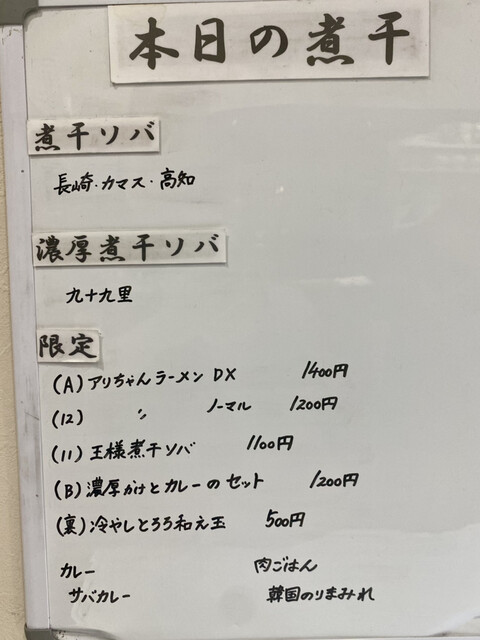 本日の煮干
煮干ソバ
長崎・カマス・高知
濃厚煮干ソバ
九十九里
限定
(A) アリちゃんラーメン DX 1400円
(12) 〃 ノーマル 1200円
(11) 王様煮干ソバ 1100円
(B) 濃厚かけとカレーのセット 1200円
(裏) 冷やしとろろ和え玉 500円
カレー 肉ごはん
サバカレー 韓国のりまみれ